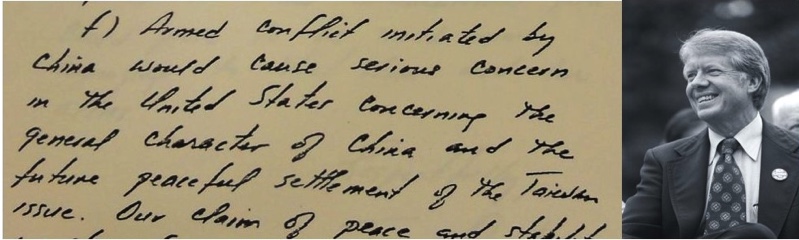 f) Armed conflict initiated by
China would cause serious concern
in the United States concerning the
general character of China and the
future peaceful settlement of the Taiwan
issue. Our claim of peace and